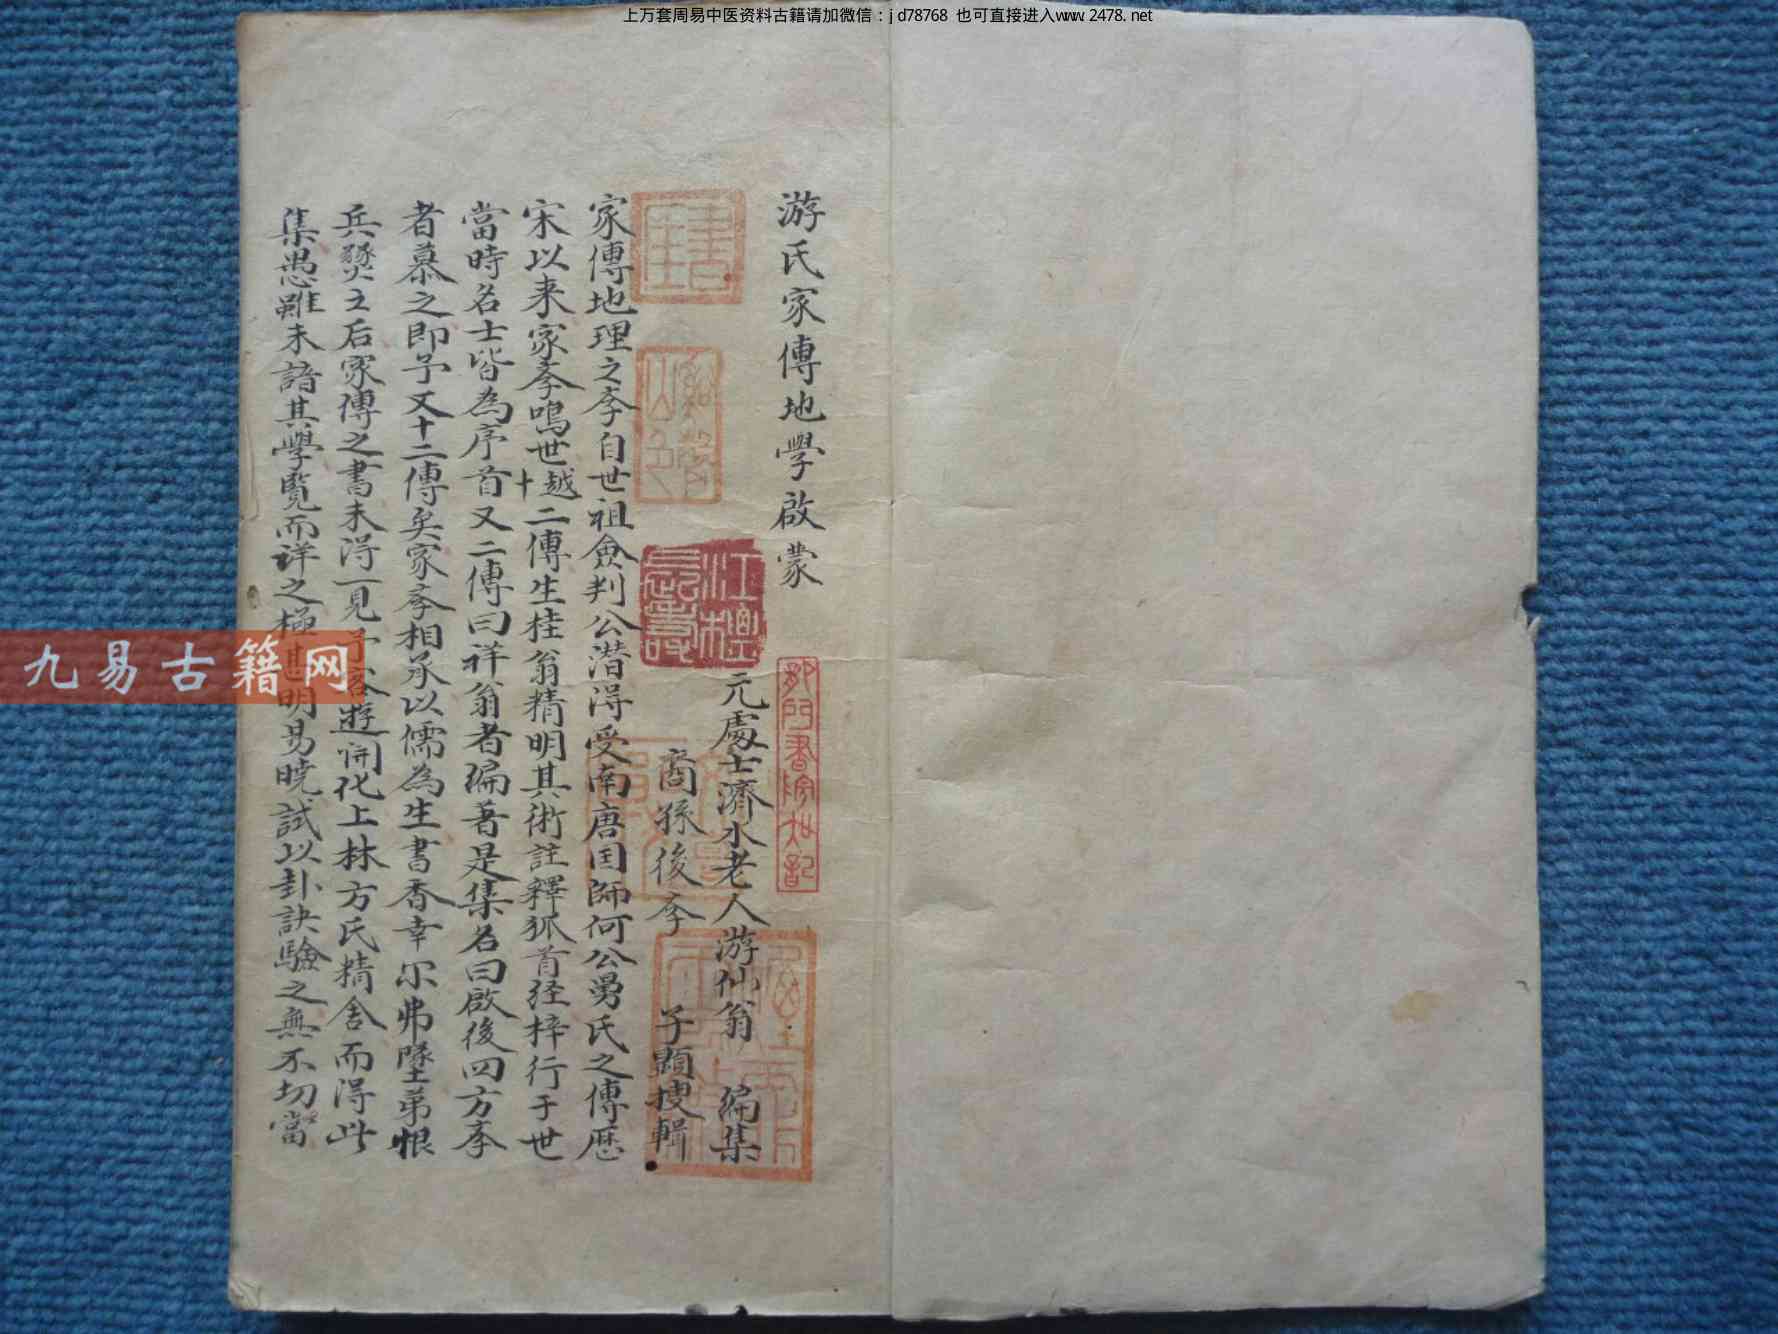 上万套周易中医资料古籍请加微信：jd78768 也可直接进入www.2478.net
游氏家傳地學啟蒙
元處士濟水老人游仙翁 編集
裔孫後斈 子顕搜輯
家傳地理之斈自世祖僉判公潜淂受南唐囯師何公男氏之傳歴
宋以来家斈鳴世越十二傳生桂翁精明其術註釋狐首経梓行于世
當時名士皆為序首又二傳曰祥翁者編著是集名曰啟後四方斈
者慕之即予又十二傳矣家斈相承以儒為生書香幸尔弗墜弟恨
兵燹之后家傳之書未淂一見予客遊開化上林方氏精舍而淂此
集愚雖未諳其學覧而详之極其明易曉試以卦訣驗之無不切當
九易古籍网